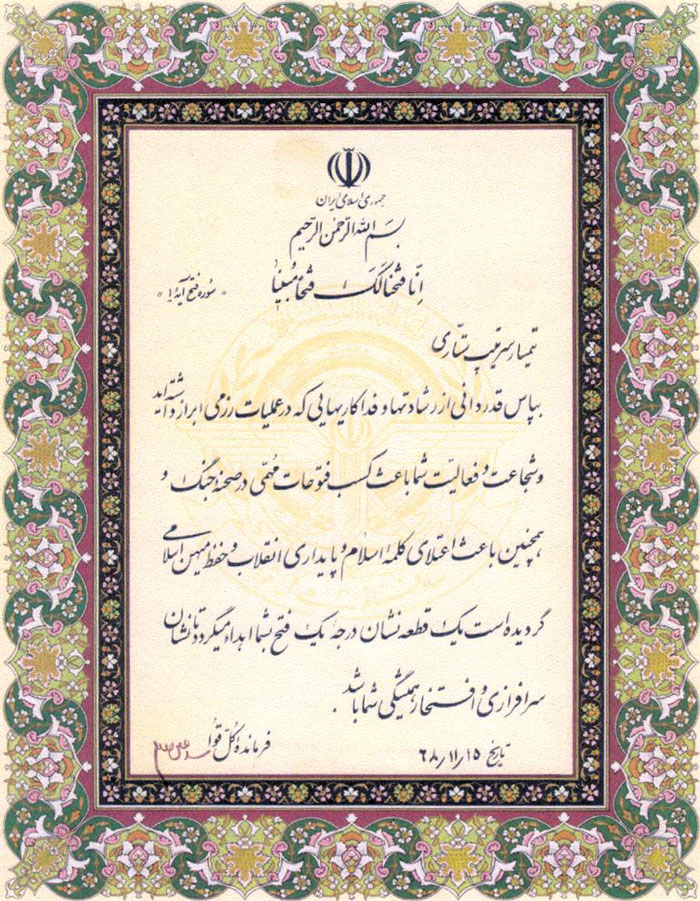 جمهوری اسلامی ایران
بسم الله الرحمن الرحیم
اِنّا فَتَحْنا لَکَ فَتْحاً مُبیناً «سوره فتح آیهٔ ۱»
تیمسار سرتیپ ستّاری
بپاس قدردانی از رشادتها و فداکاریهایی که در عملیات رزمی ابراز داشته‌اید
و شجاعت و فعالیّت شما باعث کسب فتوحات مُهمّی در صحنهٔ جنگ و
همچنین باعث اعتلای کلمهٔ اسلام و پایداری انقلاب و حفظ میهن اسلامی
گردیده است یک قطعه نشان درجه یک فتح بشما اهداء میگردد تا نشان
سرافرازی و افتخار همیشگی شما باشد.
تاریخ ۶۸٫۱۱٫۱۵ فرماندهٔ کُلّ قُوا